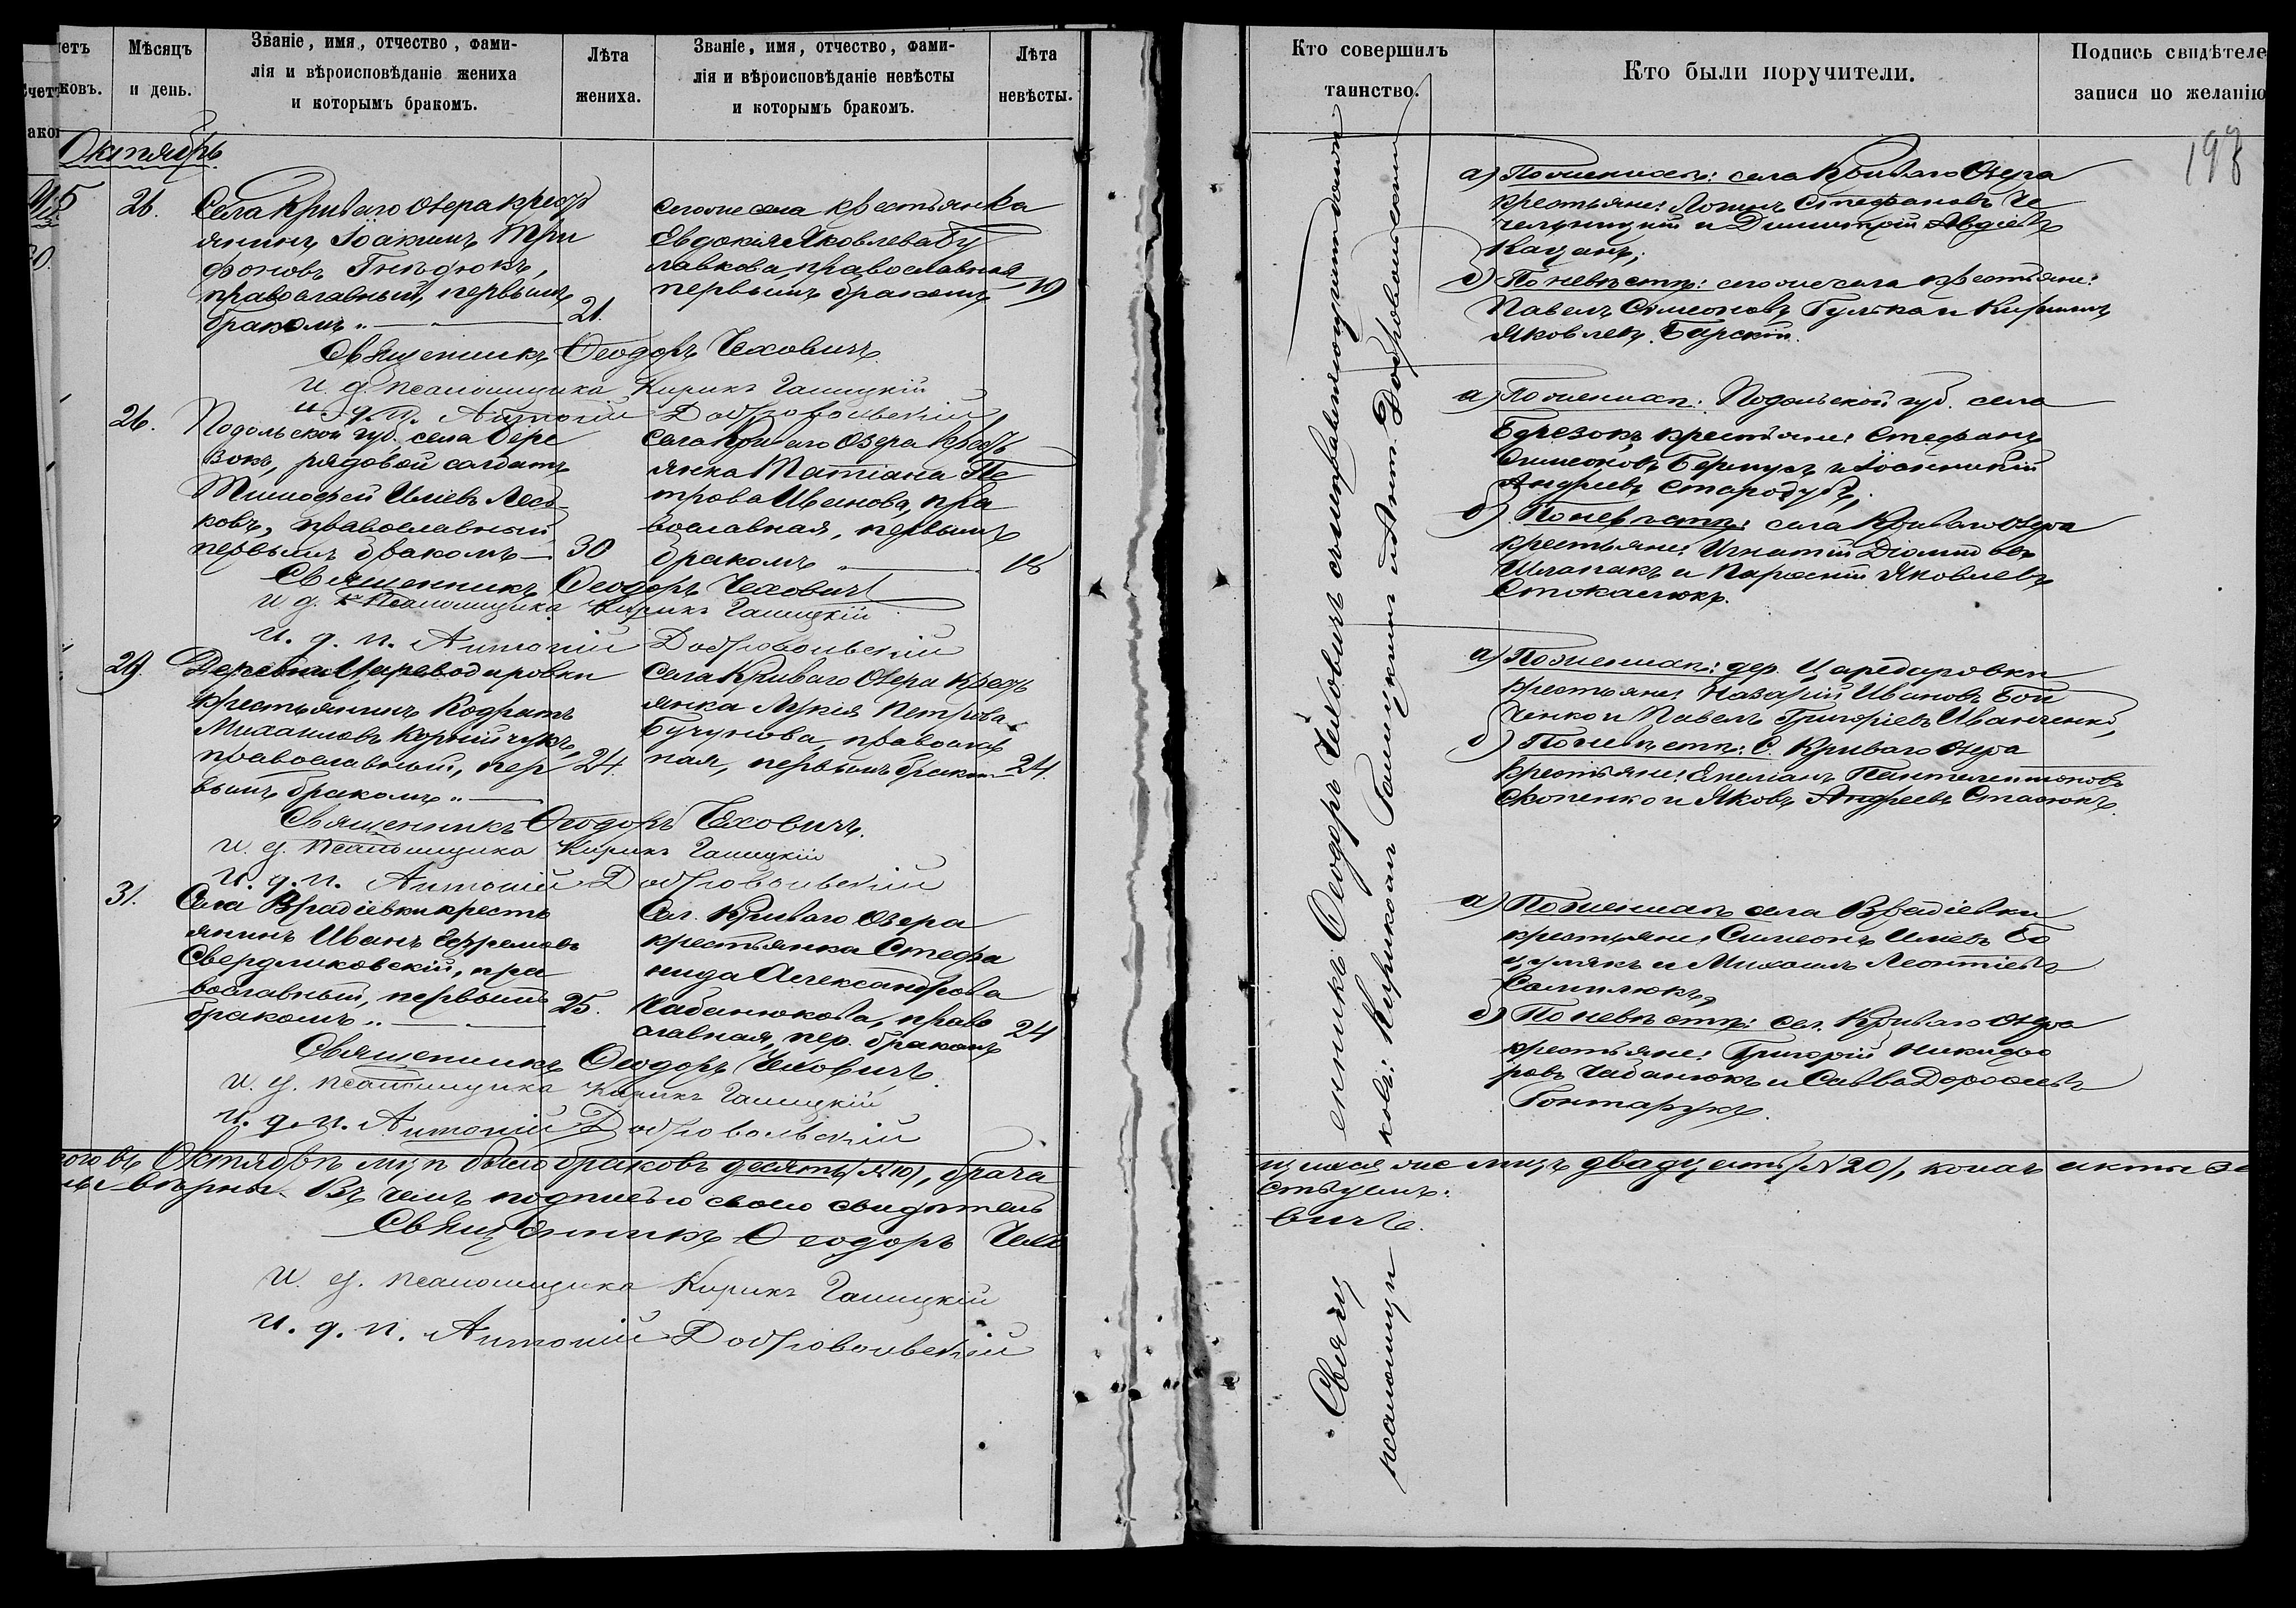 Мѣсяцъ
и день.
Званіе, имя, отчество, фами-
лія и вѣроисповѣданіе жениха
и которымъ бракомъ.
Лѣта
жениха.
Званіе, имя, отчество, фами-
лія и вѣроисповѣданіе невѣсты
и которымъ бракомъ.
Лѣта
невѣсты.
Октябрь
26.
Села Криваго Озера крест
янинъ Іоакимъ Три
фоновъ Гнѣдюкъ,
православный, первымъ
бракомъ
21.
Сего же села крестьянка
Евдокія Яковлева Бу
лавкова, православная
первымъ бракомъ
19
Священникъ Ѳеодоръ Чеховичъ.
и. д. псаломщика Кирикъ Галицкій
и. д. п. Антоній Добровольскій
26.
Подольской губ. села Бере
зокъ, рядовой солдатъ
Тимофей Иліевъ Лесь
ковъ, православный
первымъ бракомъ
30
Села Криваго Озера крест
янка Татіана Пе
трова Иванова, пра
вославная, первымъ
бракомъ
18
Священникъ Ѳеодоръ Чеховичъ
и д. псаломщика Кирикъ Галицкій
и. д. п. Антоній Добровольскій
29.
Деревни Царедаровки
крестьянинъ Кодратъ
Михаиловъ Корнійчукъ,
православный, пер
вымъ бракомъ
24.
Села Криваго Озера крест
янка Лукія Петрова
православ
ная, первымъ браком
24.
Священникъ Ѳеодоръ Чеховичъ.
и. д. псаломщика Кирикъ Галицкій
и. д. п. Антоній Добровольскій
31.
Села Врадіевки кресть
янинъ Иванъ Ефремовъ
Свердликовскій, пра
вославный, первымъ
бракомъ
25.
Сел. Криваго Озера
крестьянка Стефа
нида Александрова
Чабанюкова, право
славная, пер. бракомъ
24
Священникъ Ѳеодоръ Чеховичъ.
и. д. псаломщика Кирикъ Галицкій
и. д. п. Антоній Добровольскій
въ Октябрѣ м-цѣ было браковъ десять (№10), брача
вѣрны. Въ чемъ подписью своею свидѣтель
Священникъ Ѳеодоръ Чехо
и. д. псаломщика Кирикъ Галицкій
и. д. п. Антоній Добровольскій
Кто совершилъ
таинство.
Кто были поручители.
Подпись свидѣтеле
записи по желанію
198
Свящ
енникъ Ѳеодоръ Чеховичъ съ
псаломщи
ков: Кирикомъ Галицкимъ и Ант. Добровольскимъ
а) По женихѣ: села Криваго Озера
крестьяне: Логинъ Стефановъ Че
чельницкій и Димитрій Авдіевъ
Казанъ;
б) По невѣстѣ: сего же села крестьяне:
Павелъ Симеоновъ Гулька и Кириллъ
Яковлевъ Барскій.
а) По женихѣ: Подольской губ. села
Березокъ крестьяне: Стефанъ
Симеоновъ и Іоанникій
Андреевъ Стародубъ;
б) По невѣстѣ: села Криваго Озера
крестьяне: Игнатій Діомидовъ
Шлапакъ и Парѳеній Яковлевъ
Стокалюкъ.
а) По женихѣ: дер. Царедаровки
крестьяне: Назарій Ивановъ Бой
ченко и Павелъ Григоріевъ Иванченко,
б) По невѣстѣ: С. Криваго Озера
крестьяне: Емеліанъ Пантелеимоновъ
Скопенко и Яковъ Андреевъ Стасюкъ.
а) По женихѣ села Врадіевки
крестьяне: Симеонъ Иліевъ Бо
цулякъ и Михаилъ Леонтіевъ
Самилюкъ,
б) По невѣстѣ: сел. Криваго Озера
крестьяне: Григорій Никифо
ровъ Чабанюкъ и Савва Дороѳеевъ
Гонтарукъ.
двадцать (№20), акты
ствуемъ:
вичъ.